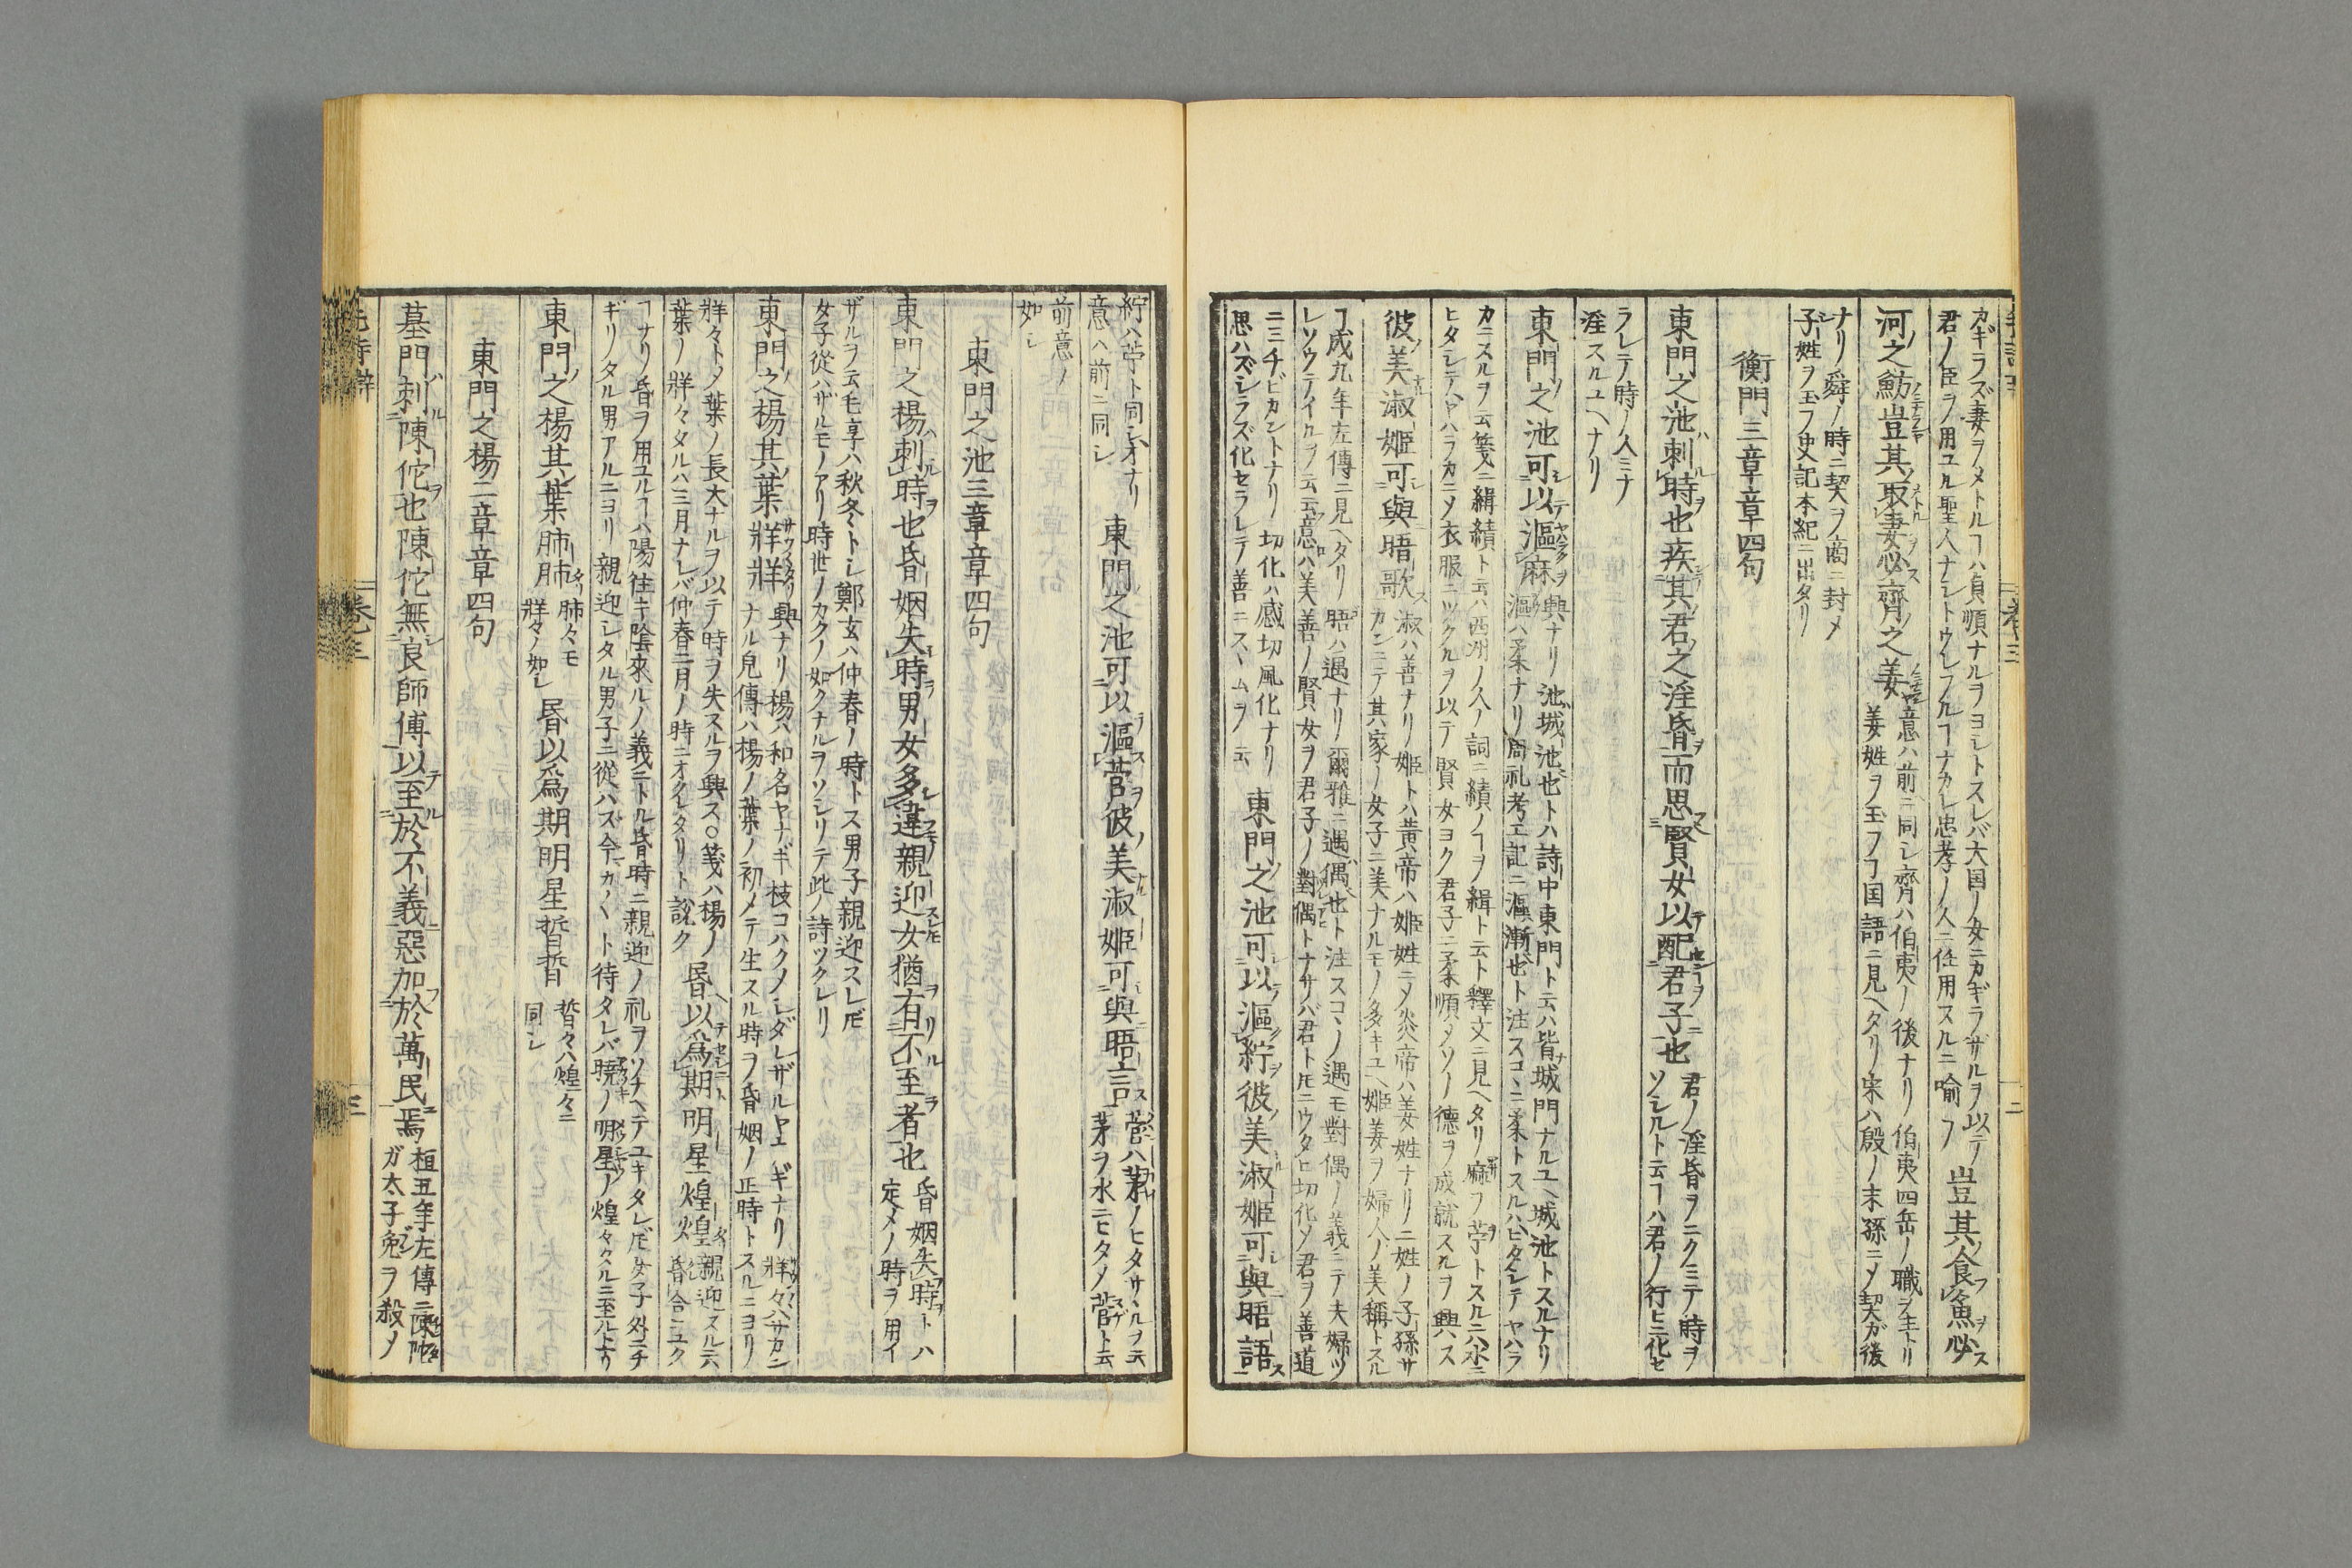 カギラズ妻ヲメトルヿハ貞順ナルヲヨシトスレバ大国ノ女ニカギラザルヲ以テノ
君ノ臣ヲノ用ユル聖人ナシトウレフルヿナカレ忠孝ノ人ニ任用スルニ喻フ
豈其食魚必
河之魴豈其取妻必齊之姜
意ハ前ニ同シ齊ハ伯夷ノ後ナリ伯夷四岳ノ職ヲ主トリ
姜姓ヲ玉フヿ国語ニ見ヘタリ宋ハ殷ノ末孫ニメ契ガ後
ナリ舜ノ時ニ契ヲ商ニ封メ
子姓ヲ玉フ史記本紀ニ出タリ
衡門三章章四句
東門之池刺時也疾其君之淫昏而思賢女以配君子也
君ノ淫昏ヲニクミテ時ヲ
ソシルト云ヿハ君ノ行ヒニ化セ
ラレテ時ノ人ミナ
淫スルユヘナリ
東門之池可以漚麻
興ナリ池ハ城池也トハ詩中東門ト云ハ皆城門ナルユヘ城池トスルナリ
漚ハ柔ナリ周礼考工記ニ漚漸也ト注スコヽニ柔トスルハヒタシテヤハラ
カニスルヲ云箋ニ緝績ト云ハ西州ノ人ノ詞ニ績ノヿヲ緝ト云ト釋文ニ見ヘタリ麻ヲ苧トスルニハ水ニ
ヒタシテヤハラカニメ衣服ニツクルヲ以テ賢女ヨク君子ニ柔順メソノ德ヲ成就スルヲ興ス
彼美淑姬可與晤歌
淑ハ善ナリ姬トハ黃帝ハ姬姓ニメ炎帝ハ姜姓ナリ二姓ノ子孫サ
カンニテ其家ノ女子ニ美ナルモノ多キユヘ姬姜ヲ婦人ノ美稱トスル
ヿ成九年左傳ニ見ヘタリ晤ハ遇ナリ爾雅ニ遇偶也ト注スコヽノ遇モ對偶ノ義ニテ夫婦ツ
レソウテイルヲ云意ハ美善ノ賢女ヲ君子ノ對偶トナサバ君トトモニウタヒ切化メ君ヲ善道
ニミチビカントナリ切化ハ感切風化ナリ
思ハズシラズ化セラレテ善ニスヽムヲ云
東門之池可以漚紵彼美淑姬可與晤語
紵ハ苧ト同シ才ナリ
意ハ前ニ同シ
東門之池可以漚菅彼美淑姬可與晤言
菅ハ茅ノヒタサヽルヲ云
茅ヲ水ニヒタメ菅ト云
前意ノ
如シ
東門之池三章章四句
東門之楊刺時也昏姻失時男女多違親迎女猶有不至者也
昏姻失時トハ
定メノ時ヲ用イ
ザルヲ云毛享ハ秋冬トシ鄭玄ハ仲春ノ時トス男子親迎スレ𪜈
女子從ハザルモノアリ時世ノカクノ如クナルヲソシリテ此ノ詩ツクレリ
東門之楊其葉牂牂
興ナリ楊ハ和名ヤナギ枝コハクノシダレザルヤナギナリ牂々ハサカン
ナル皃傳ハ楊ノ葉ノ初メテ生スル時ヲ昏姻ノ正時トスルニヨリ
牂々トメ葉ノ長大ナルヲ以テ時ヲ失スルヲ興ス○箋ハ楊ノ
葉ノ牂々タルハ三月ナレバ仲春二月ノ時ニオクレタリト說ク
昬以爲期明星煌煌
親迎スルニハ
昏合ニユク
ヿナリ昏ヲ用ユルヿハ陽往キ陰來ルノ義ニトル昏時ニ親迎ノ礼ヲソナヘテユキタレ𪜈女子外ニチ
ギリノタル男アルニヨリ親迎シタル男子ニ從ハズ今カ〳〵ト待タレバ曉ノ明星ノ煌々タルニ至ルトナリ
東門之楊其葉肺肺
肺々モ
牂々ノ如シ
昬以爲期明星晢晢
晢々ハ煌々ニ
同シ
東門之楊二章章四句
墓門刺陳佗也陳佗無良師傅以至於不義惡加於萬民焉
桓五年左傳ニ陳陀
ガ太子免ヲ殺メ
卷三
三